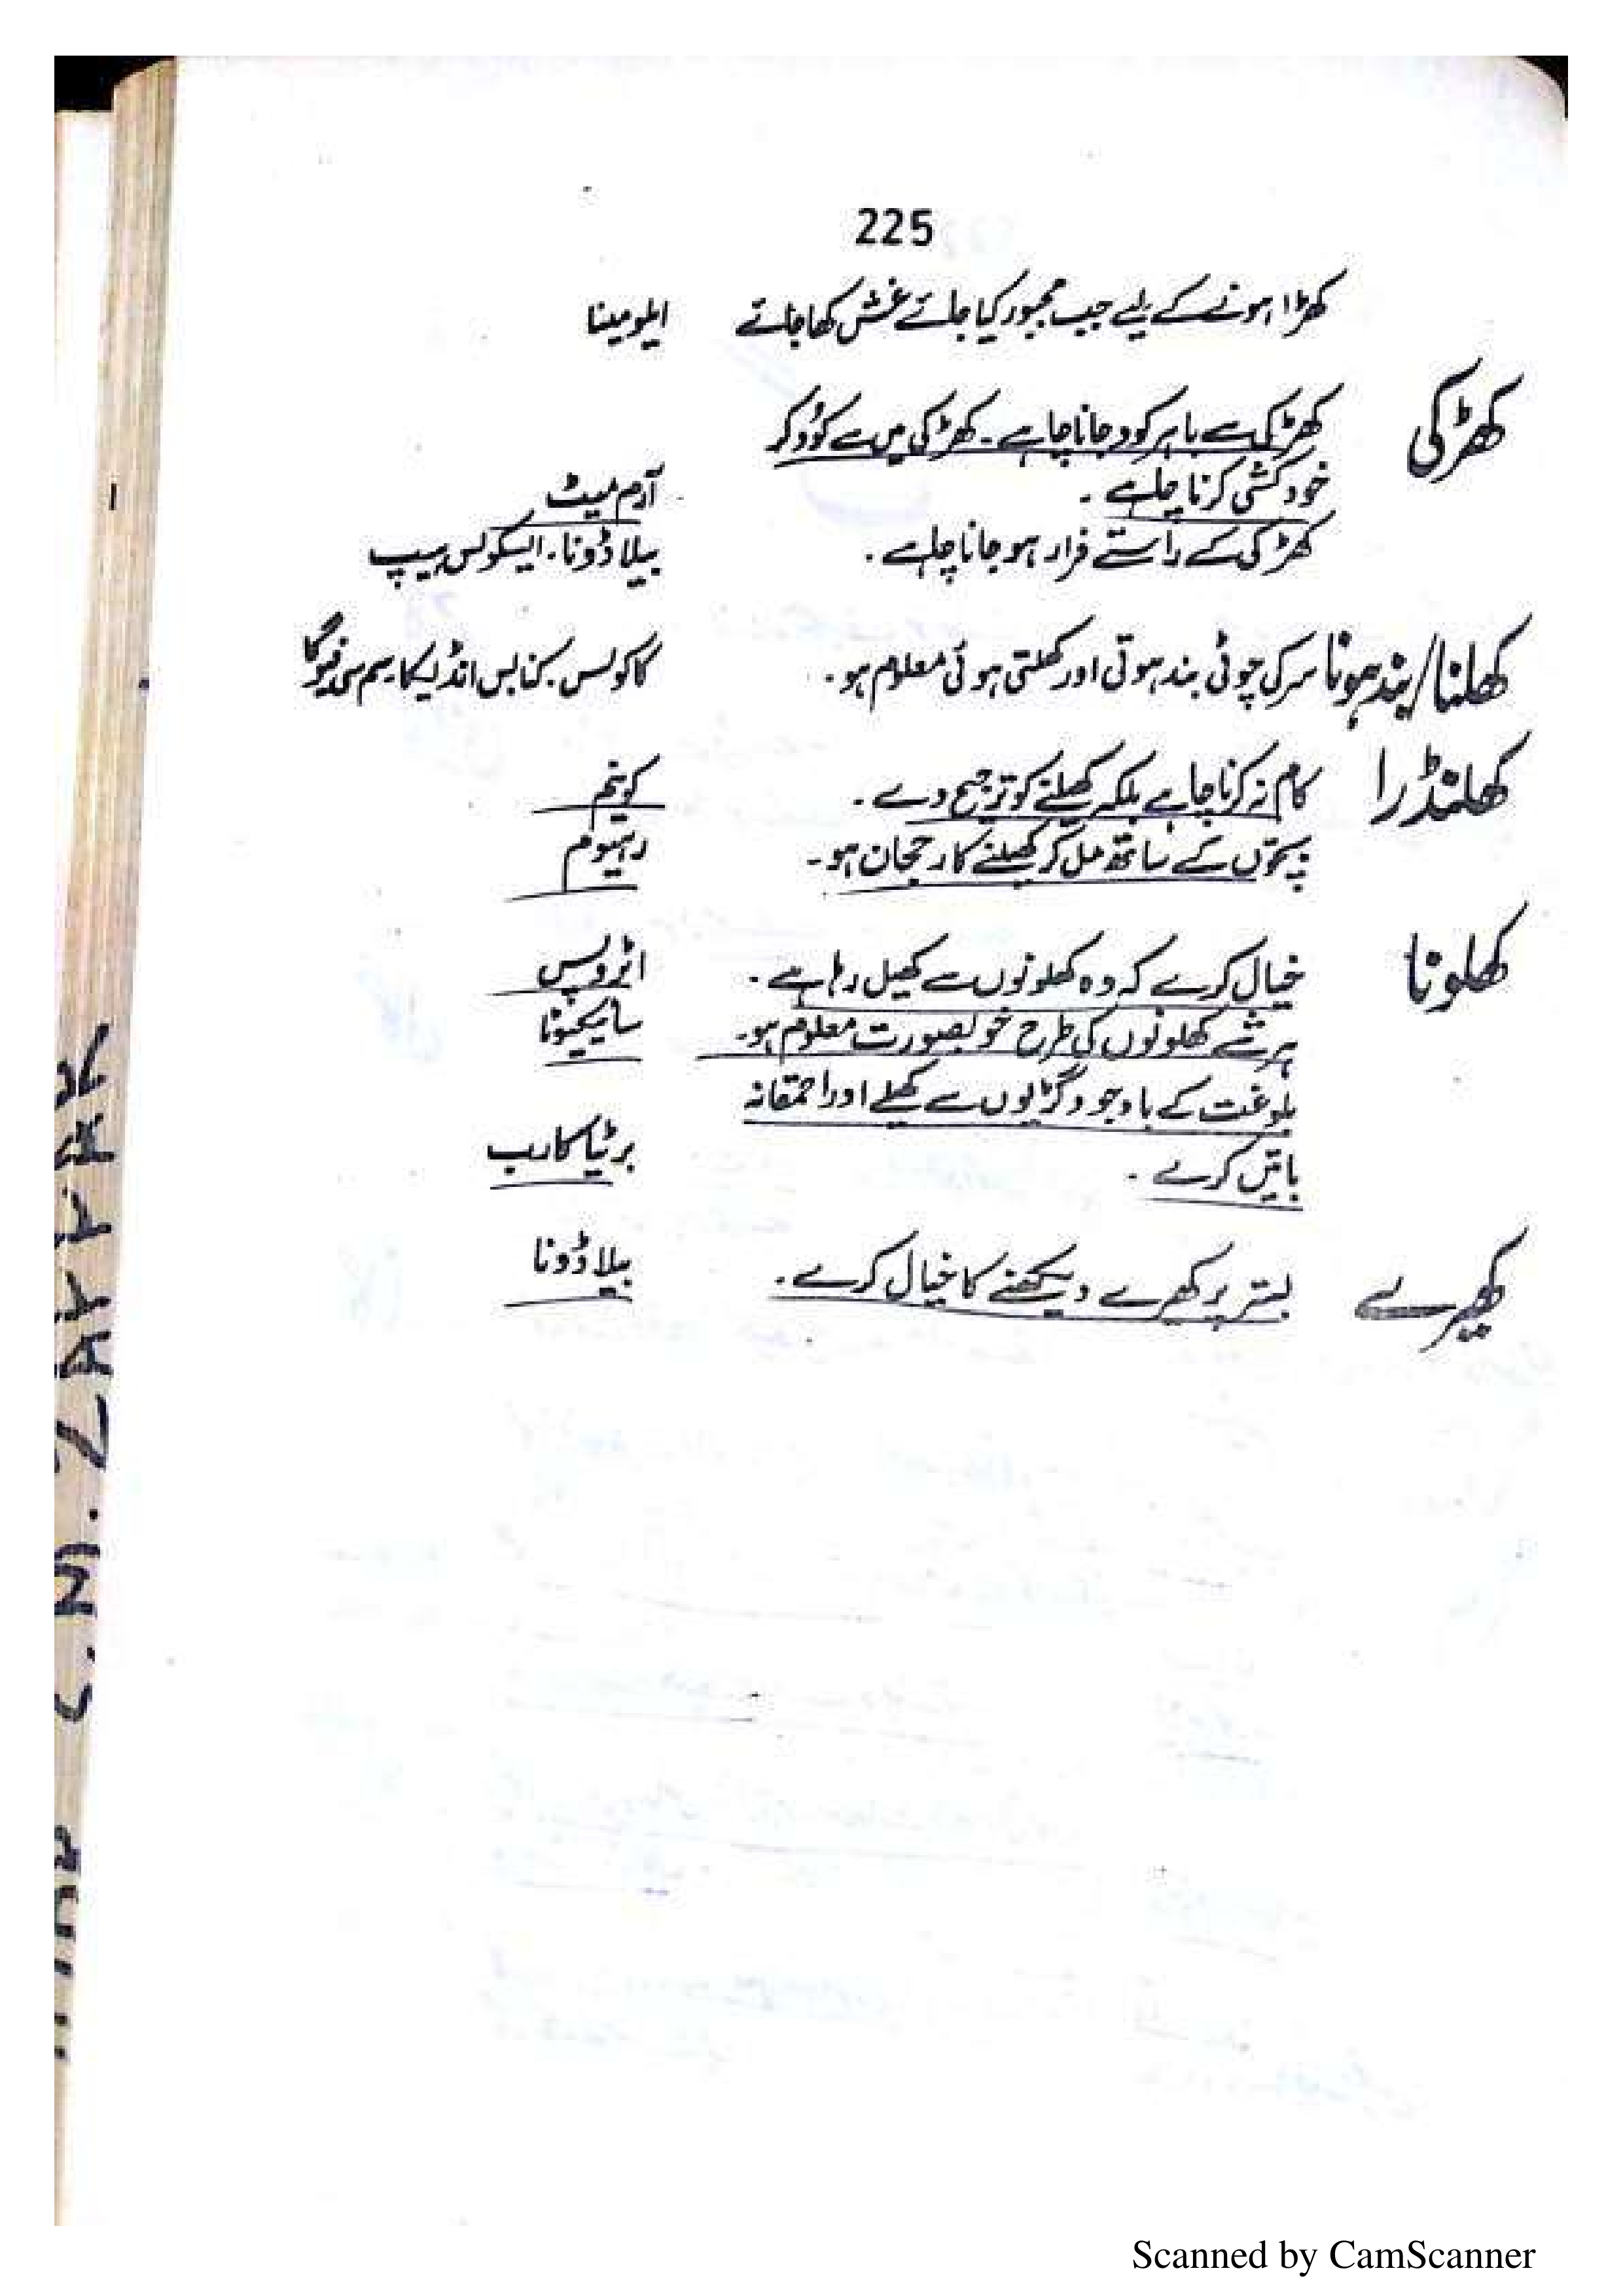 225
کھڑا ہونے کے لیے جب مجبور کیا جائے غش کھا جائے ایلومینا
کھڑکی کھڑکی سے باہر کود جانا چاہے ۔ کھڑکی میں سے کُود کر
خودکشی کرنا چاہے ۔ آرم میٹ
کھڑکی کے راستے فرار ہو جانا چاہے ۔ بیلاڈونا ۔ ایسکولس ہیپ
کھلنا/بند ہونا سر کی چوٹی بند ہوتی اور کھلتی ہوئی معلوم ہو ۔ کاکولس کن بس انڈیکا سم سی فیوگا
کھلنڈرا کام نہ کرنا چاہے بلکہ کھیلنے کو ترجیح دے ۔ کونیم
بچوں کے ساتھ مل کر کھیلنے کا رجحان ہو ۔ رہیوم
کھلونا خیال کرے کہ وہ کھلونوں سے کھیل رہا ہے ۔ اٹروپس
ہر شے کھلونوں کی طرح خوبصورت معلوم ہو ۔
بلوغت کے باوجود گڑیوں سے کھیلے اور احمقانہ
باتیں کرے ۔ برٹیا کارب
کھیرے بستر پر کھیرے دیکھنے کا خیال کرے ۔ بیلاڈونا
Scanned by CamScanner